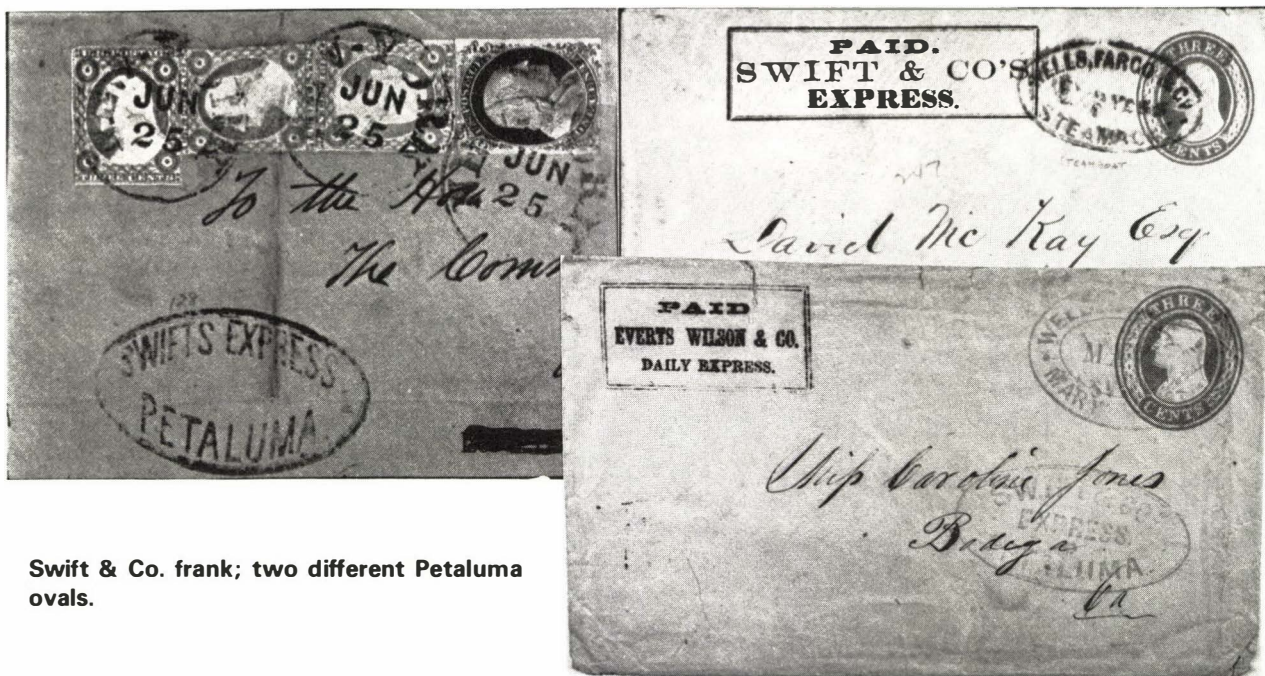 JUN
25
JUN
25
JUN
25
To the Hon
The Comm
128
SWIFTS EXPRESS
PETALUMA.
PAID.
SWIFT & CO'S
EXPRESS.
WELLS, FARGO & CO
STEAMBOAT
THREE
CENTS
David Mc Kay Esq
PAID
EVERTS WILSON & CO.
DAILY EXPRESS.
WELLS
MARY
THREE
CENTS
Miss Caroline Jones
Bodega
Ca
EXPRESS
Swift & Co. frank; two different Petaluma
ovals.